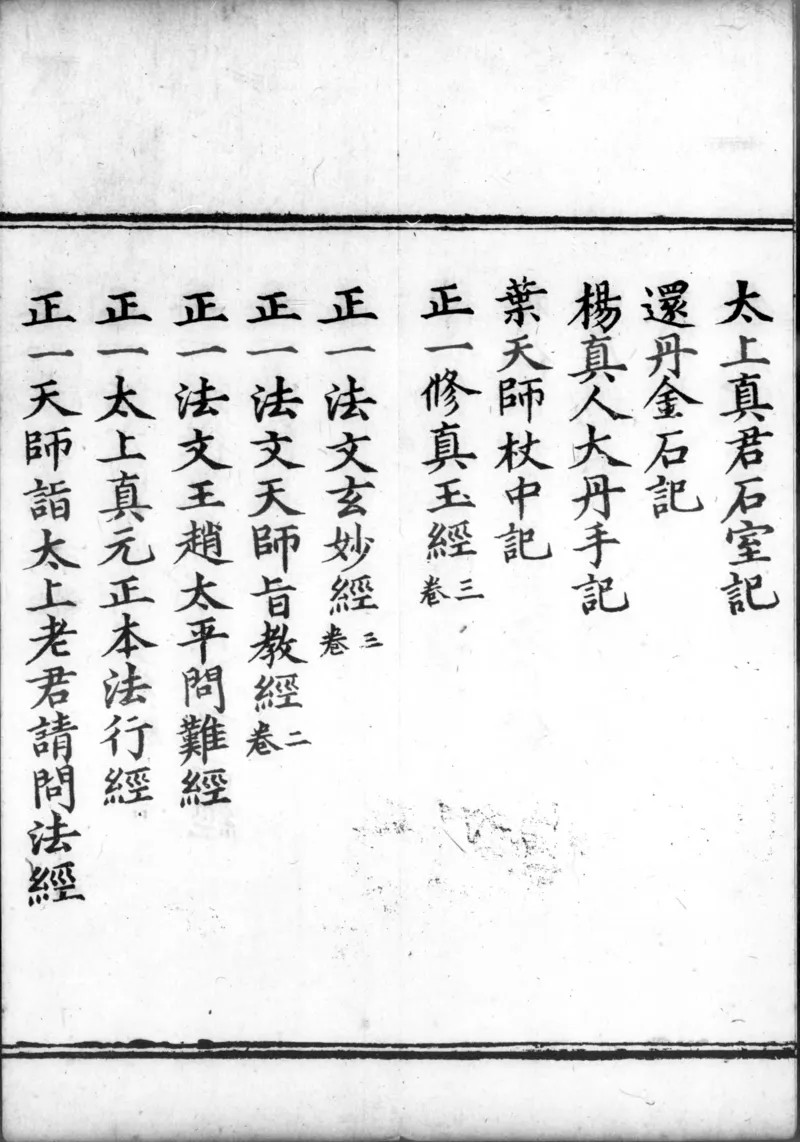 太上真君石室記
還丹金石記
楊真人大丹手記
葉天師杖中記
正一修真玉經三卷
正一法文玄妙經三卷
正一法文天師旨教經二卷
正一法文王趙太平問難經
正一太上真元正本法行經
正一天師詣太上老君請問法經